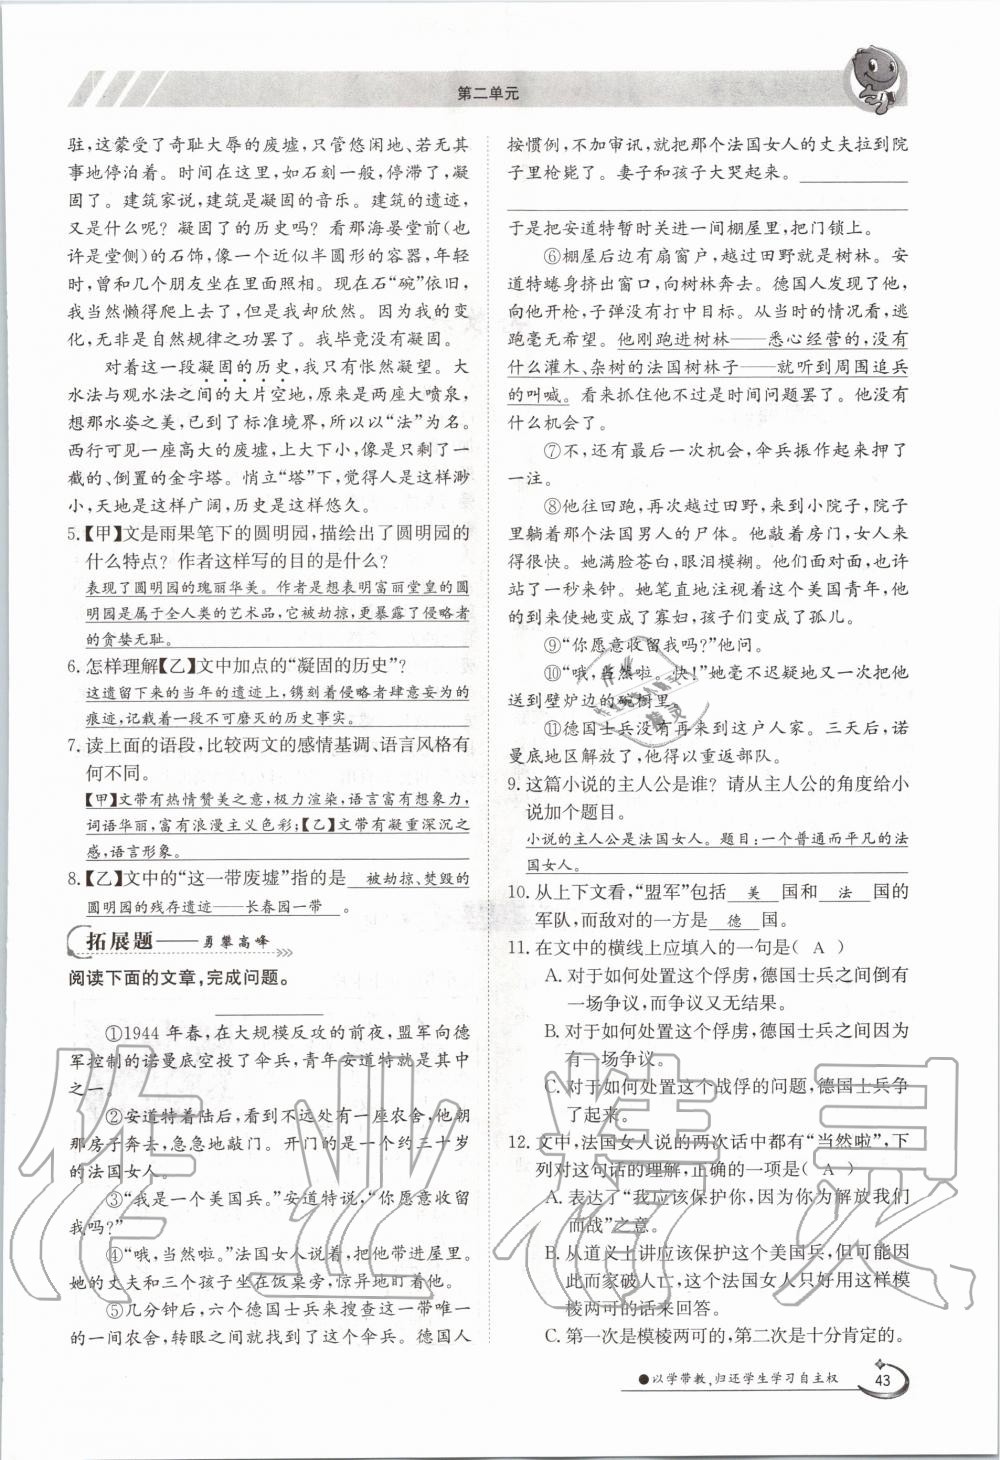 第二单元
驻，这蒙受了奇耻大辱的废墟，只管悠闲地、若无其
事地停泊着。时间在这里，如石刻一般，停滞了，凝
固了。建筑家说，建筑是凝固的音乐。建筑的遗迹，
又是什么呢？凝固了的历史吗？看那海晏堂前（也
许是堂侧）的石饰，像一个近似半圆形的容器，年轻
时，曾和几个朋友坐在里面照相。现在石“碗”依旧，
我当然懒得爬上去了，但是我却欣然。因为我的变
化，无非是自然规律之功罢了。我毕竟没有凝固。
对着这一段凝固的历史，我只有怅然凝望。大
水法与观水法之间的大片空地，原来是两座大喷泉，
想那水姿之美，已到了标准境界，所以以“法”为名。
西行可见一座高大的废墟，上大下小，像是只剩了一
截的、倒置的金字塔。悄立“塔”下，觉得人是这样渺
小，天地是这样广阔，历史是这样悠久。
5.【甲】文是雨果笔下的圆明园，描绘出了圆明园的
什么特点？作者这样写的目的是什么？
表现了圆明园的瑰丽华美。作者是想表明富丽堂皇的圆
明园是属于全人类的艺术品，它被劫掠，更暴露了侵略者
的贪婪无耻。
6.怎样理解【乙】文中加点的“凝固的历史”？
这遗留下来的当年的遗迹上，镌刻着侵略者肆意妄为的
痕迹，记载着一段不可磨灭的历史事实。
7.读上面的语段，比较两文的感情基调、语言风格有
何不同。
【甲】文带有热情赞美之意，极力渲染，语言富有想象力，
词语华丽，富有浪漫主义色彩；【乙】文带有凝重深沉之
感，语言形象。
8.【乙】文中的“这一带废墟”指的是 被劫掠、焚毁的
圆明园的残存遗迹——长春园一带 。
拓展题——勇攀高峰
阅读下面的文章，完成问题。
①1944年春，在大规模反攻的前夜，盟军向德
军控制的诺曼底空投了伞兵，青年安道特就是其中
之一。
②安道特着陆后，看到不远处有一座农舍，他朝
那房子奔去，急急地敲门。开门的是一个约三十岁
的法国女人。
③“我是一个美国兵。”安道特说，“你愿意收留
我吗？”
④“哦，当然啦。”法国女人说着，把他带进屋里。
她的丈夫和三个孩子坐在饭桌旁，惊异地盯着他。
⑤几分钟后，六个德国士兵来搜查这一带唯一
的一间农舍，转眼之间就找到了这个伞兵。德国人
按惯例，不加审讯，就把那个法国女人的丈夫拉到院
子里枪毙了。妻子和孩子大哭起来。
于是把安道特暂时关进一间棚屋里，把门锁上。
⑥棚屋后边有扇窗户，越过田野就是树林。安
道特蜷身挤出窗口，向树林奔去。德国人发现了他，
向他开枪，子弹没有打中目标。当时的情况看，逃
跑毫无希望。他刚跑进树林——悉心经营的，没有
什么灌木、杂树的法国树林子——就听到周围追兵
的叫喊。看来抓住他不过是时间问题罢了。他没有
什么机会了。
⑦不，还有最后一次机会，伞兵振作起来押上了
一注。
⑧他往回跑，再次越过田野，来到小院子，院子
里躺着那个法国男人的尸体。他敲着房门，女人很
快地来开门。她满脸苍白，眼泪模糊。他们面对面也许
站了一秒来钟。她笔直地注视着这个美国青年，他
的到来使她变成了寡妇，孩子们变成了孤儿。
⑨“你愿意收留我吗？”他问。
⑩“哦，当然啦。快！”她毫不迟疑地又把他
送到壁炉边的碗橱里。
⑪德国士兵没有再来到这户人家。三天后，诺
曼底地区解放了，他得以重返部队。
9.这篇小说的主人公是谁？请从主人公的角度给小
说加个题目。
小说的主人公是法国女人。题目：一个普通而平凡的法
国女人。
10.从上下文看，“盟军”包括 美 国和 法 国的
军队，而敌对的一方是 德 国。
11.在文中的横线上应填入的一句是（ A ）
A.对于如何处置这个俘虏，德国士兵之间倒有
一场争议，而争议又无结果。
B.对于如何处置这个俘虏，德国士兵之间因为
有一场争议。
C.对于如何处置这个战俘的问题，德国士兵争
了起来。
12.文中，法国女人说的两次话中都有“当然啦”，下
列对这句话的理解，正确的一项是（ A ）
A.表达了“我应该保护你，因为你是为解放我们
而战”之意。
B.从道义上讲应该保护这个美国兵，可是可能因
此而家破人亡，这个法国女人只好用这样模
棱两可的话来回答。
C.第一次是模棱两可的，第二次是十分肯定的。
●以学带教，归还学生学习自主权
43
作业精灵